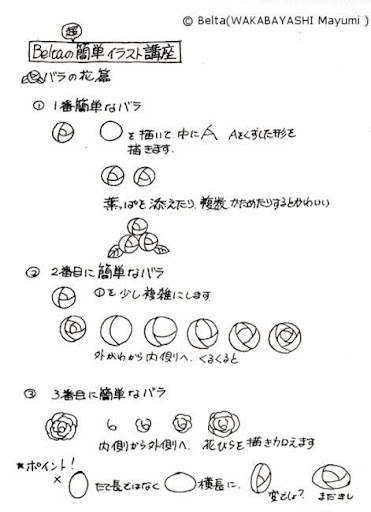 © Belta(WAKABAYASHI Mayumi )
超
Beltaの簡単イラスト講座
バラの花篇
① 1番簡単なバラ
○を描いて、中に A Aをくずした形を
描きます.
葉っぱを添えたり、複数かためたりするとかわいい
② 2番目に簡単なバラ
①を少し複雑にします
外がわから内側へ、くるくると
③ 3番目に簡単なバラ
内側から外側へ、花びらを描き加えます
★ポイント!
× たて長ではなく 横長に. 変でしょ? まだまし